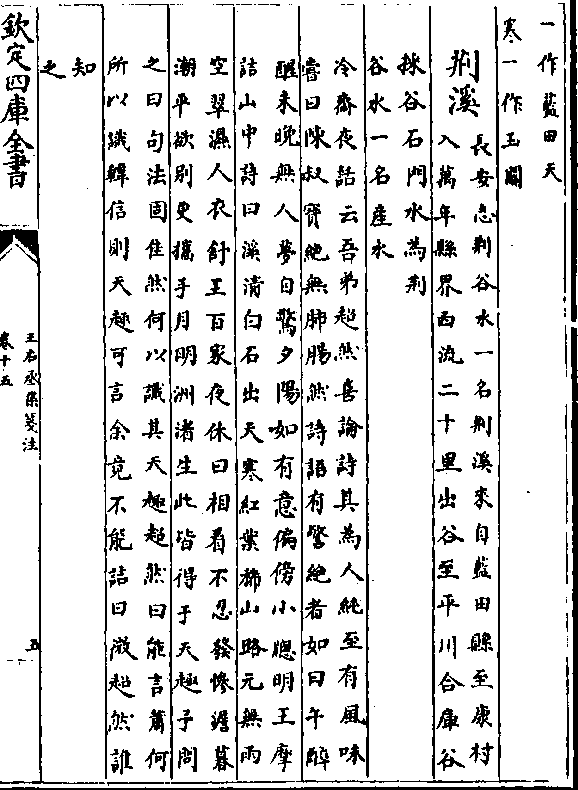 一作藍田天
寒一作玉關
荆溪
長安志荆谷水一名荆溪來自藍田縣至康村
入萬年縣界西流二十里出谷至平川合庫谷
採谷石門水為荆
谷水一名産水
冷齋夜話云吾弟超然喜論詩其為人純至有風味
嘗曰陳叔寶絶無肺腸然詩語有警絶者如曰午醉
醒来晚無人夢自驚夕陽如有意偏傍小牕明王摩
詰山中詩曰溪清白石出天寒紅葉稀山路元無雨
空翠濕人衣舒王百家夜休曰相看不忍發慘澹暮
潮平欲别更攜手月明洲渚生此皆得于天趣予問
之曰句法固佳然何以識其天趣超然曰能言蕭何
所以識韓信則天趣可言余竟不能詰曰微超然誰
知
之
欽定四庫全書
王右丞集箋注
卷十五
五